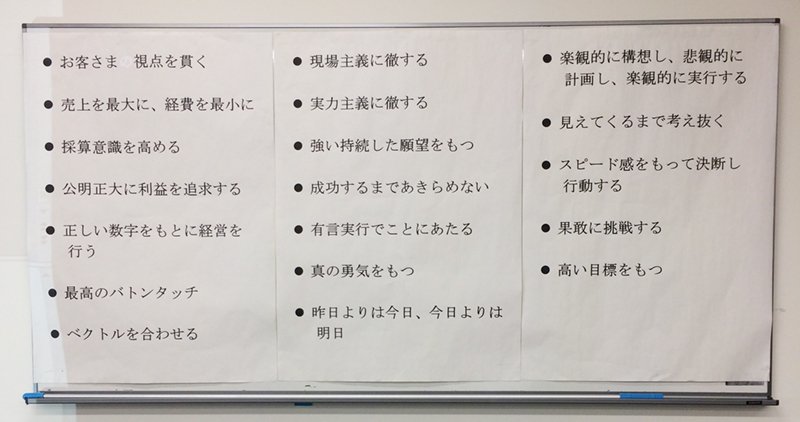 ● お客さま 視点を貫く
● 売上を最大に、経費を最小に
● 採算意識を高める
● 公明正大に利益を追求する
● 正しい数字をもとに経営を
行う
● 最高のバトンタッチ
● ベクトルを合わせる
● 現場主義に徹する
● 実力主義に徹する
● 強い持続した願望をもつ
● 成功するまであきらめない
● 有言実行でことにあたる
● 真の勇気をもつ
● 昨日よりは今日、今日よりは
明日
● 楽観的に構想し、悲観的に
計画し、楽観的に実行する
● 見えてくるまで考え抜く
● スピード感をもって決断し
行動する
● 果敢に挑戦する
● 高い目標をもつ